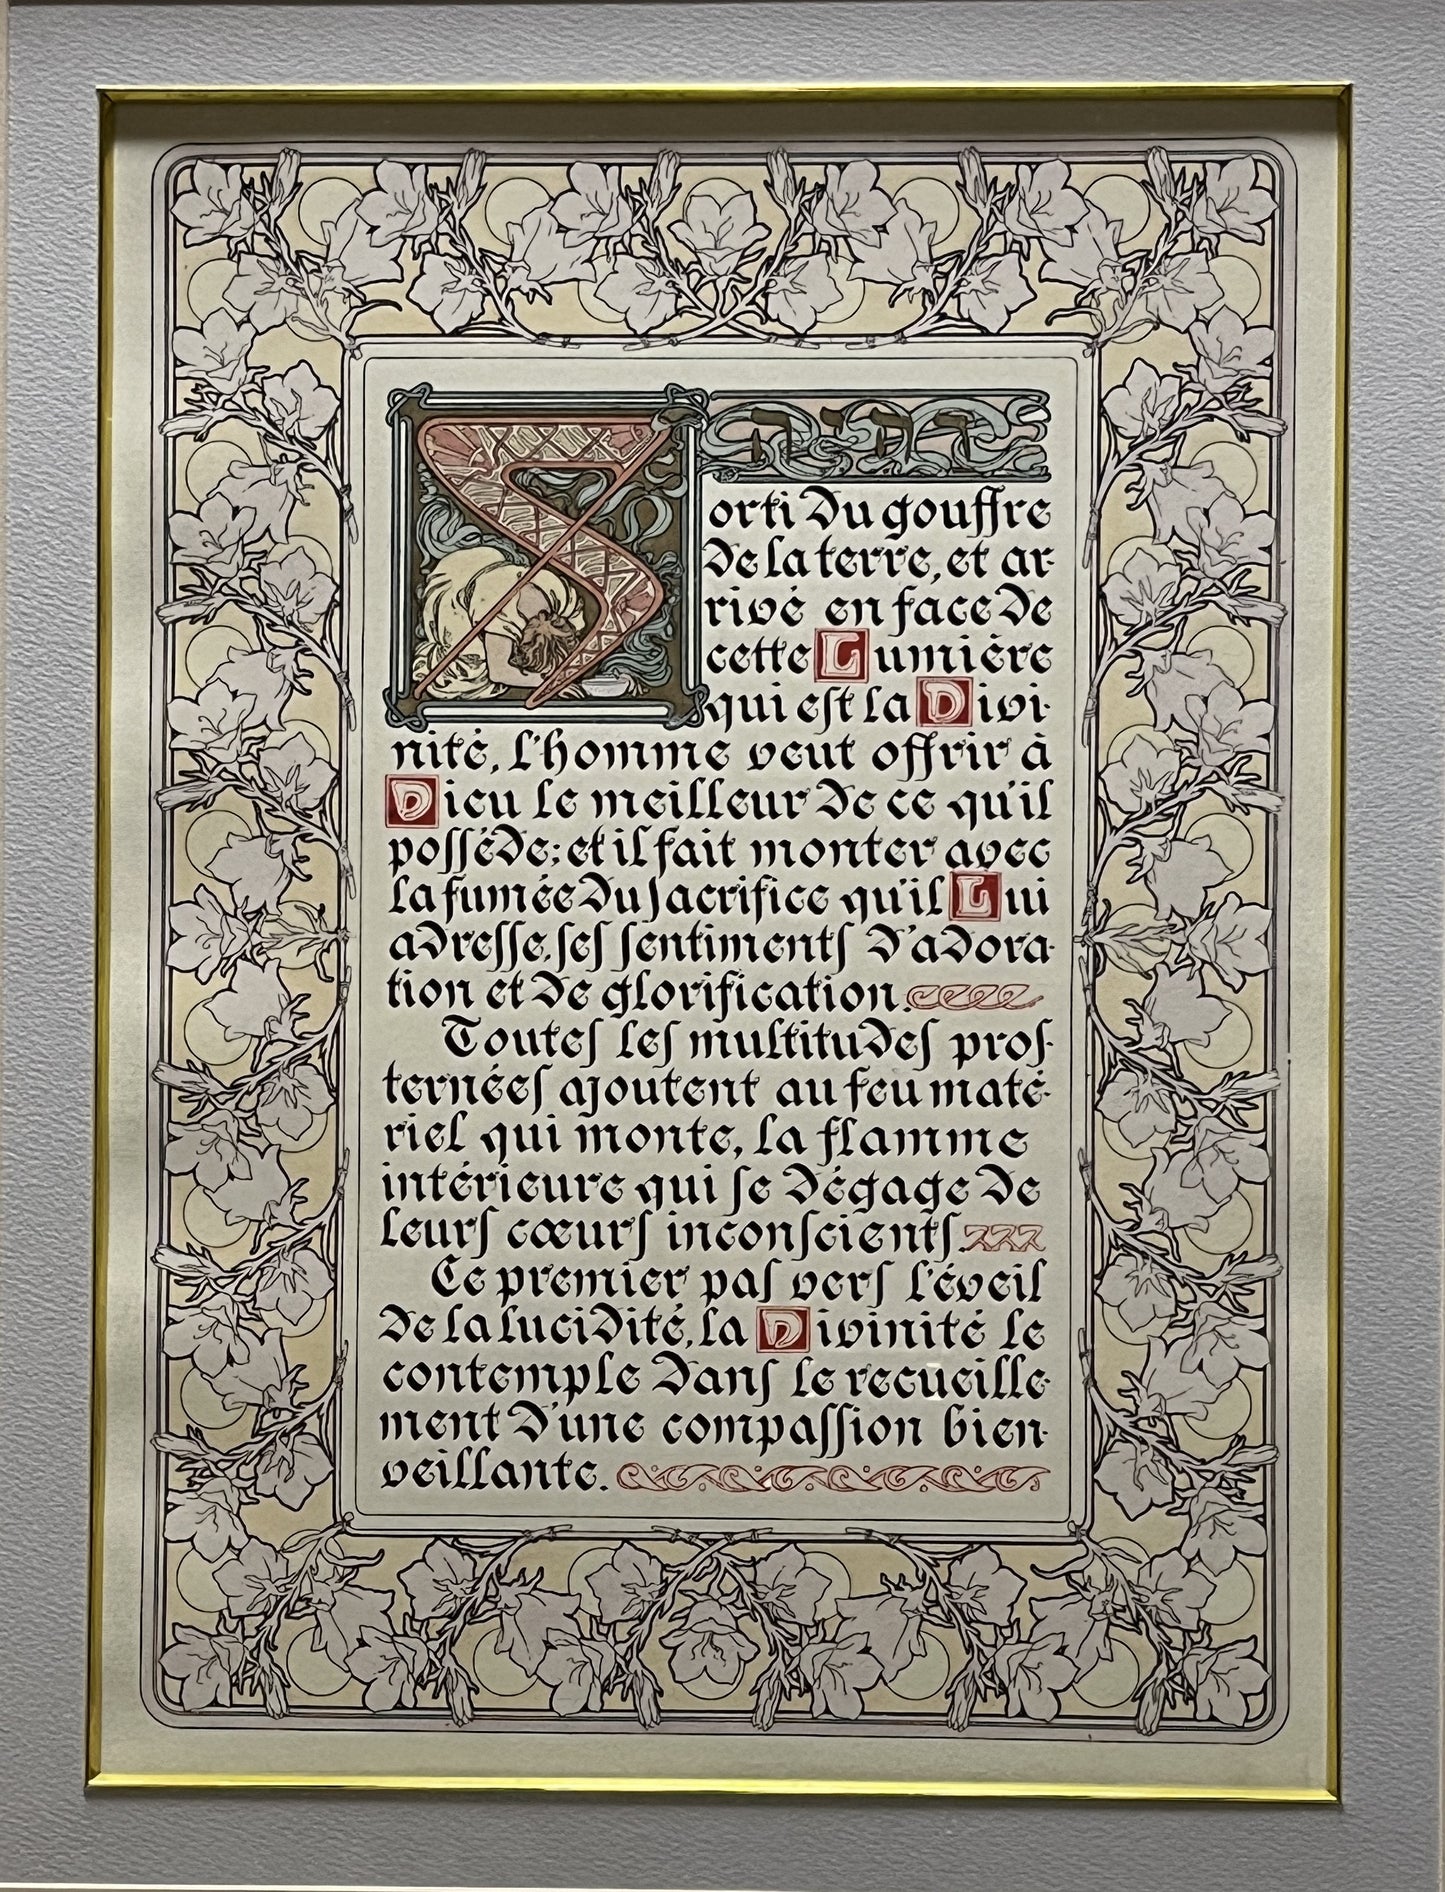 Sorti du gouffre
de la terre, et ar-
rivé en face de
cette Lumière
qui est la Divi-
nité, l'homme veut offrir à
Dieu le meilleur de ce qu'il
possède; et il fait monter avec
la fumée du sacrifice qu'il Lui
adresse, ses sentiments d'adora-
tion et de glorification.
Toutes les multitudes pros-
ternées ajoutent au feu maté-
riel qui monte, la flamme
intérieure qui se dégage de
leurs cœurs inconscients.
Ce premier pas vers l'éveil
de la lucidité, la Divinité le
contemple dans le recueille-
ment d'une compassion bien-
veillante.